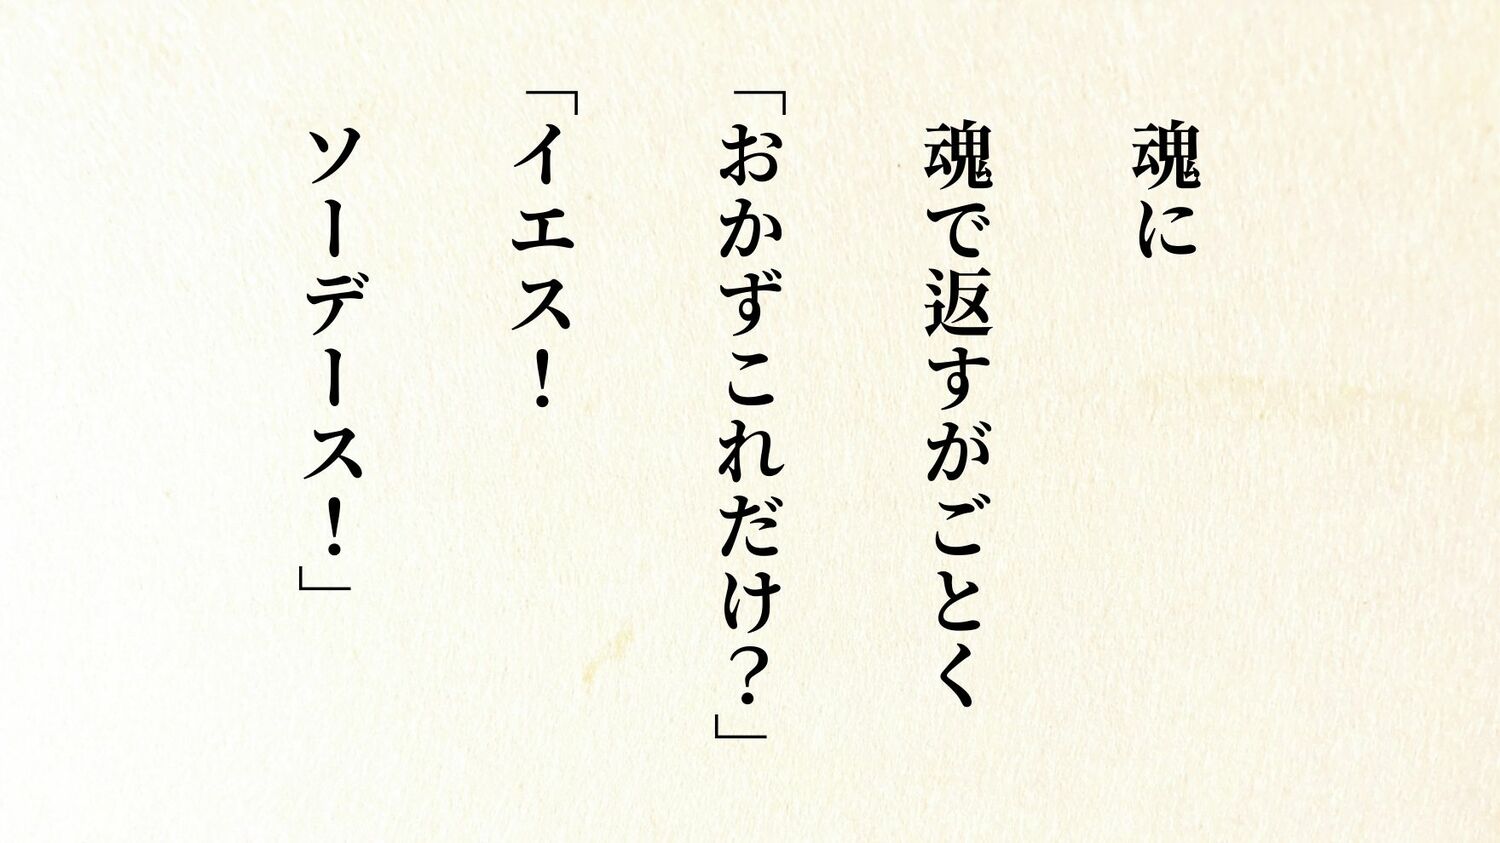 魂に
魂で返すがごとく
「おかずこれだけ?」
「イエス!
ソーデース!」